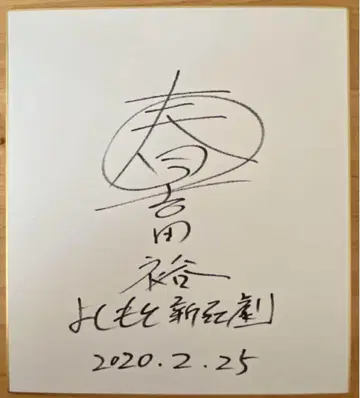 吉
田
裕
よしもと新喜劇
2020.2.25